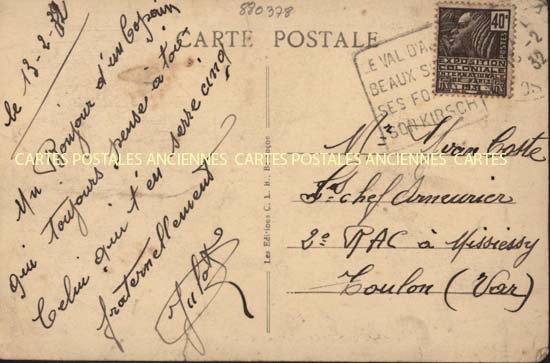 880378
CARTE POSTALE
le 13-2-32
Un Bonjour d'un Copain
qui toujours pense à toi
Celui qui t'en serre cinq
fraternellement
40c
EXPOSITION
COLONIALE
LE VAL D'A
BEAUX S
SES FO
SON KIRSCH
CARTES POSTALES ANCIENNES CARTES POSTALES ANCIENNES CARTES POSTALES ANCIENNES
Les Editions C. L. B., Besançon
Mr Yvan Coste
chef Armurier
2e RAC à Missiessy
Toulon (Var)